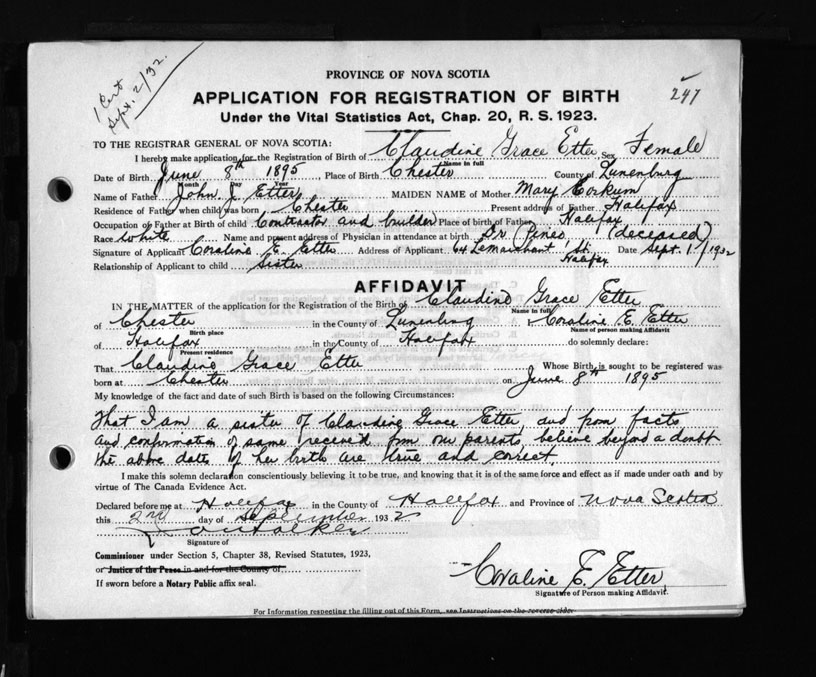 1 Cert
Sept. 2/32.
PROVINCE OF NOVA SCOTIA
247
APPLICATION FOR REGISTRATION OF BIRTH
Under the Vital Statistics Act, Chap. 20, R. S. 1923.
TO THE REGISTRAR GENERAL OF NOVA SCOTIA:
I hereby make application for the Registration of Birth of Claudine Grace Etter Sex Female
Name in full
Date of Birth June 8th 1895 Place of Birth Chester County of Lunenburg
Month Day Year
Name of Father John J. Etter MAIDEN NAME of Mother Mary Corkum
Residence of Father when child was born Chester Present address of Father Halifax
Occupation of Father at Birth of child Contractor and builder Place of birth of Father Halifax
Race White Name and present address of Physician in attendance at birth Dr (Pineo, (deceased)
Signature of Applicant Coraline E. Etter Address of Applicant 64 Lemarchant St. Halifax Date Sept. 1st/1932
Relationship of Applicant to child Sister
AFFIDAVIT
IN THE MATTER of the application for the Registration of the Birth of Claudine Grace Etter
Name in full
of Chester in the County of Lunenburg I, Coraline E. Etter
Birth place Name of person making Affidavit
of Halifax in the County of Halifax do solemnly declare:
Present residence
That Claudine Grace Etter Whose Birth is sought to be registered was
born at Chester on June 8th 1895
My knowledge of the fact and date of such Birth is based on the following Circumstances:
That I am a sister of Claudine Grace Etter, and from facts
and confirmation of same received from our parents, believe beyond a doubt
the above dates of her birth are true and correct.
I make this solemn declaration conscientiously believing it to be true, and knowing that it is of the same force and effect as if made under oath and by
virtue of The Canada Evidence Act.
Declared before me at Halifax in the County of Halifax and Province of Nova Scotia
this 2nd day of September 1932
Signature of
Commissioner under Section 5, Chapter 38, Revised Statutes, 1923,
or Justice of the Peace in and for the County of
If sworn before a Notary Public affix seal.
Coraline E. Etter
Signature of Person making Affidavit.
For Information respecting the filling out of this Form, see Instructions on the reverse side